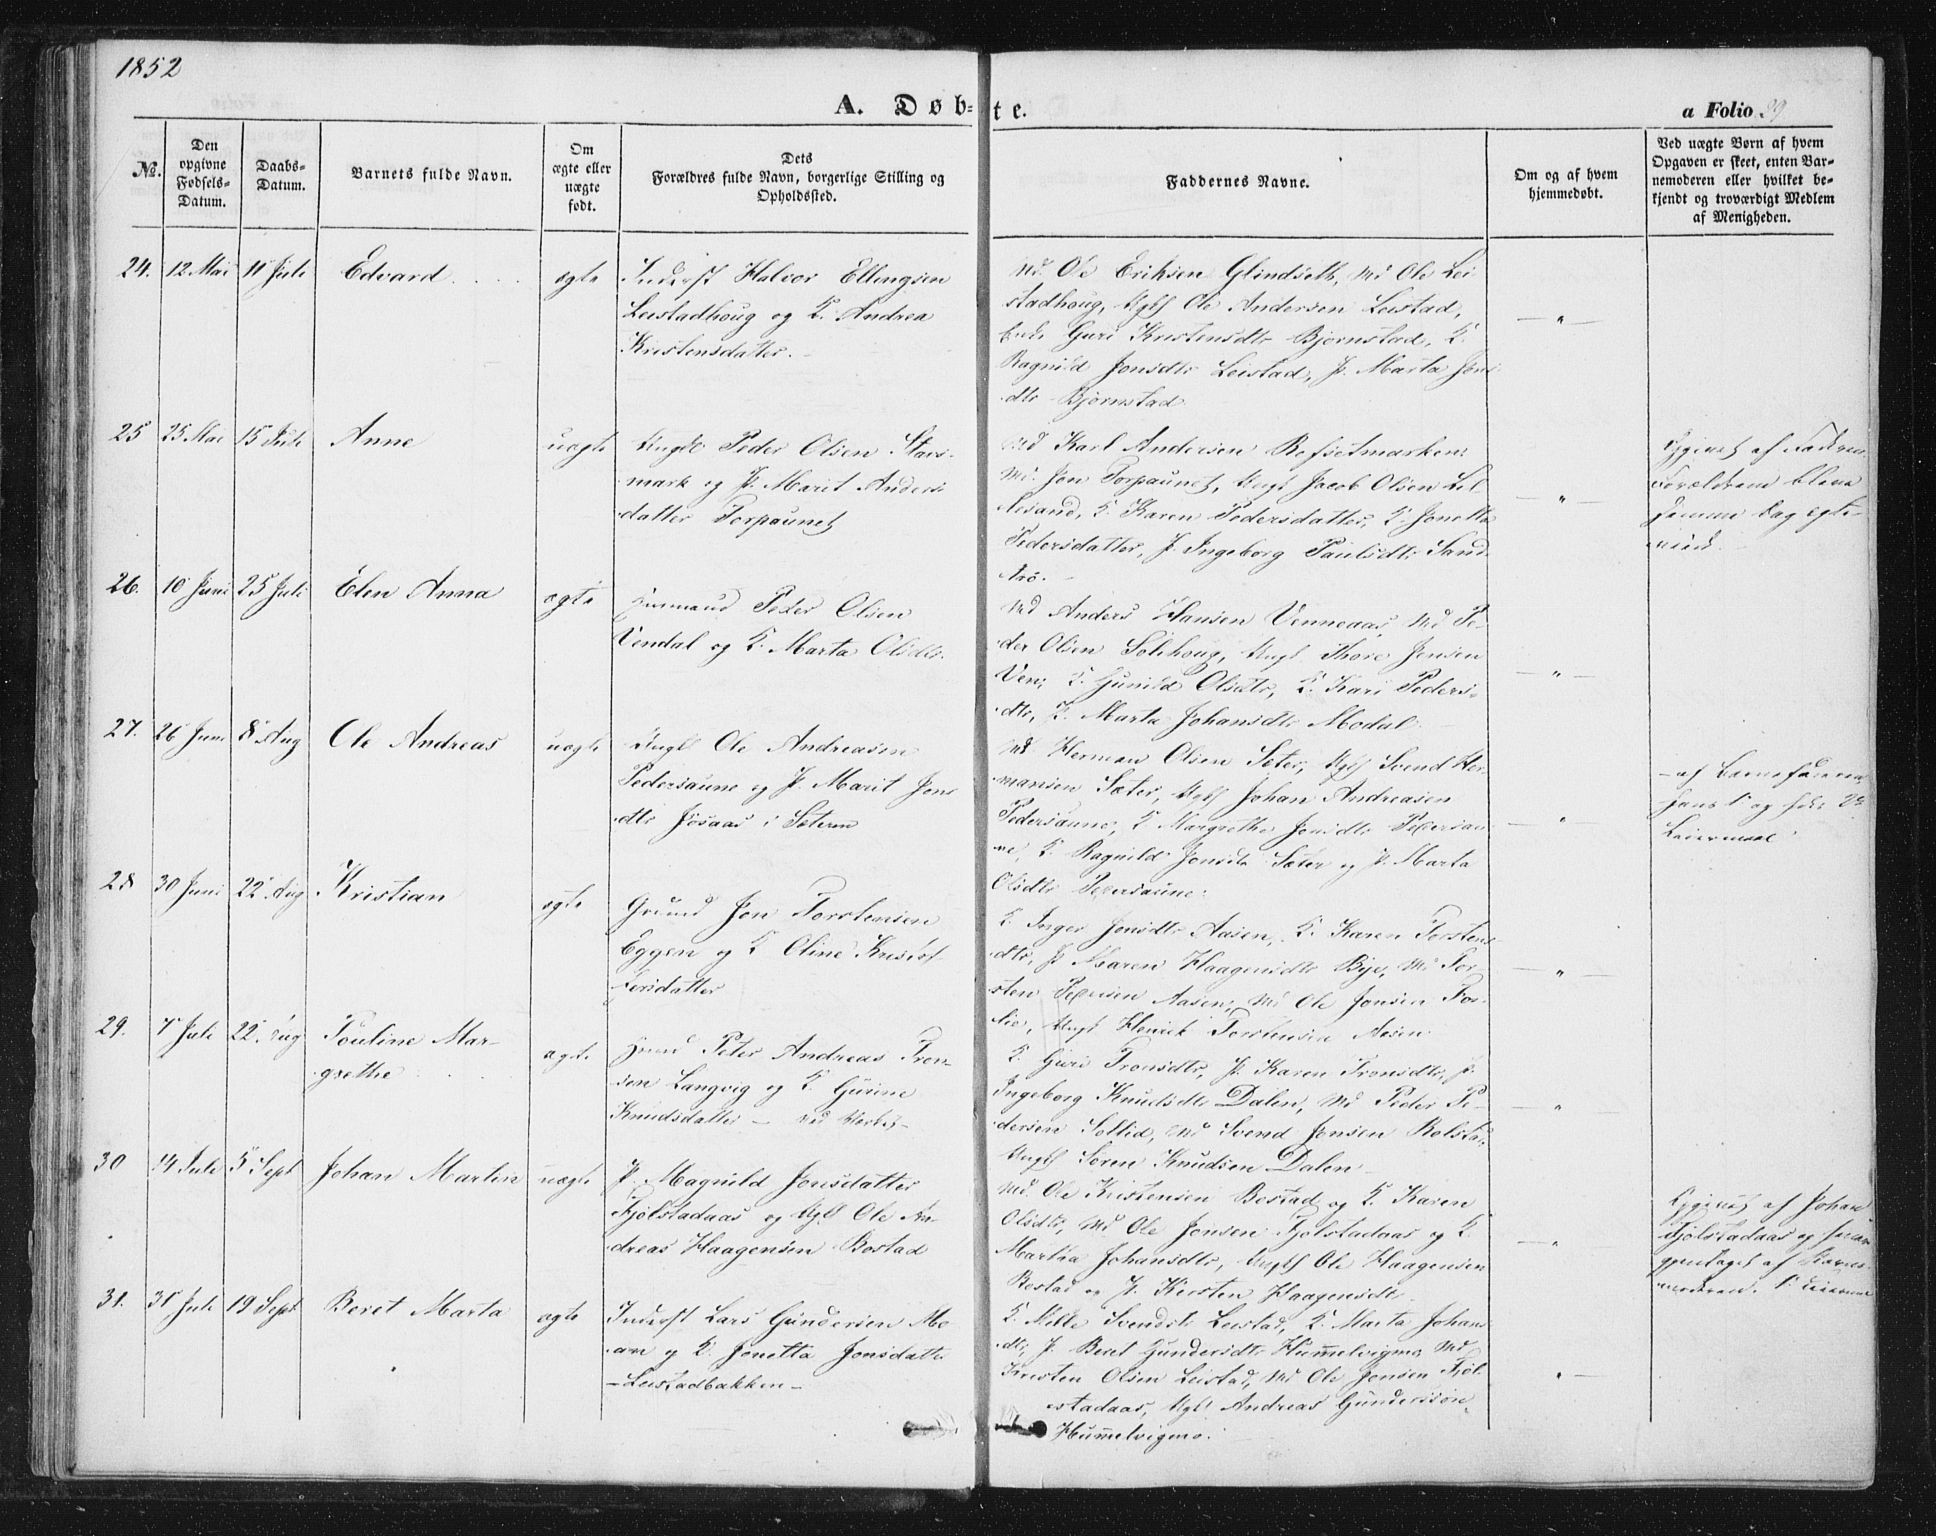 1852
A. Døb-
te.
a Folio 39
No.
Den
opgivne
Fødsels-
Datum.
Daabs-
Datum.
Barnets fulde Navn.
Om
ægte eller
uægte
født.
Dets
Forældres fulde Navn, borgerlige Stilling og
Opholdssted.
Faddernes Navne.
Om og af hvem
hjemmedøbt.
Ved uægte Børn af hvem
Opgaven er skeet, enten Bar-
nemoderen eller hvilket be-
kjendt og troværdigt Medlem
af Menigheden.
24. 12 Mai 11 Juli Edvard ægte
Inderst Halvor Ellingsen
Leistadhoug og K. Andrea
Kristensdatter.
Md. Ole Eriksen Glindseth, Md Ole Lei
stadhoug, Ungk Ole Andersen Leistad,
Guri Kristensdtr Bjørnstad, K.
Ragnild Jonsdtr Leistad, P. Marta Jons
dtr Bjørnstad
— " —
25 25 Mai 15 Juli Anne uægte
Ungk Peder Olsen Stavs-
mark og P. Marit Anders
datter Torpaunet
Md Karl Andersen Refsetmarken
Md. Jon Torpaunet, Ungk Jacob Olsen Lil
lesand, K. Karen Pedersdatter, K. Jonetta
Pedersdatter, P. Ingeborg Paulsdtr Sand
— " —
Opgivet af Faderen
Forældrene bleve
samme Dag ægte-
viede.
26. 10 Juni 25 Juli Elen Anna ægte
Huusmand Peder Olsen
Vendal og K. Marta Olsdtr.
Md Anders Hansen Venneaas, Md Pe-
der Olsen Solihoug, Ungk Thore Jensen
Ven, K. Gunild Olsdtr, K. Kari Peders-
dtr, P. Marta Johansdtr Modal
— " —
27. 26 Juni 8 Aug Ole Andreas uægte
Ungk Ole Andreasen
Pedersaune og P. Marit Jons
dtr Jøsaas i Seteren
Md Herman Olsen Seter, Ungk Svend Her
mansen Sæter, Ungk Johan Andreasen
Pedersaune, K. Margrethe Jonsdtr Pedersau
ne, K. Ragnild Jonsdtr Sæter og P. Marta
Olsdtr Pedersaune.
— " —
— af Barnefaderen
hans 1 og hds 2
Leiermaal
28 30 Juni 22 Aug Kristian ægte
Gaarmd Jon Torstensen
Eggen og K Oline Kristof
fersdatter
K. Inger Jonsdtr Aasen, K. Karen Torstens
dtr, P Maren Haagensdtr Bye, Md Tor-
sten Pedersen Aasen, Md Ole Jonsen For
lie, Ungk Henrik Torstensen Aasen
— " —
29. 7 Juli 22 Aug Pouline Mar-
grethe ægte
Peter Andreas Tron-
sen Langvig og K. Gurine
Knudsdatter —
K. Guri Tronsdtr, P. Karen Tronsdtr, P.
Ingeborg Knudsdtr Dalen, Md Peder Pe-
dersen Sollid, Md Svend Jonsen Rolstad
Ungk Søren Knudsen Dalen —
— " —
30 14 Juli 5 Sept Johan Martin uægte
P. Magnild Jonsdatter
Fjølstadaas og Ungk Ole An-
dreas Haagensen Bostad
Md. Ole Kristensen Bostad og K Karen
Olsdtr, Md Ole Jonsen Fjølstadaas og K
Martha Johansdtr, Ungk Ole Haagensen
Bostad og P. Kirsten Haagensdtr.
— " —
Opgivet af Johan
Fjølstadaas og
gjentaget af Barne-
moderen.
31. 31 Juli 19 Sept Beret Marta ægte
Inderst Lars Gundersen Mo-
an og K. Jonetta Jonsdatter
— Leistadbakken —
K. Mille Svendsdtr Leistad, K. Marta Johans
dtr, P. Beret Gundersdtr Hummelvigmo, Md
Kristen Olsen Leistad, Md Ole Jensen Fjøl
stadaas, Ungk Andreas Gunderssøn
Hummelvigmo.